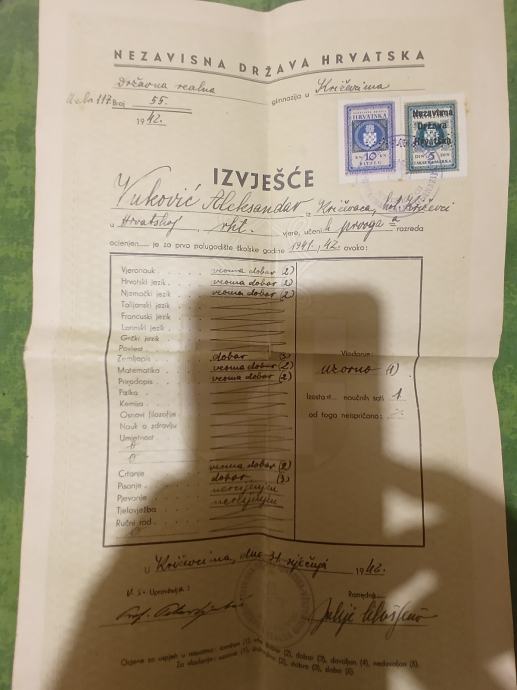 NEZAVISNA DRŽAVA HRVATSKA
Državna realna gimnazija u Križevcima
Broj 55.
1942.
HRVATSKA
10
Nezavisna
Država
Hrvatska
5
IZVJEŠĆE
Vuković Aleksandar iz Križevaca, kot. Križevci
u Hrvatskoj, rkt. vjere, učenik prvoga a razreda
ocijenjen je za prvo polugodište školske godine 1941./42. ovako:
Vjeronauk veoma dobar (2)
Hrvatski jezik veoma dobar (2)
Njemački jezik veoma dobar (2)
Talijanski jezik
Francuski jezik
Latinski jezik
Grčki jezik
Povijest
Zemljopis dobar (3)
Matematika veoma dobar (2)
Prirodopis veoma dobar (2)
Fizika
Kemija
Osnovi filozofije
Nauk o zdravlju
Umjetnost
Čitanje veoma dobar (2)
Pisanje dobar (3)
Pjevanje neocijenjen
Tjelovježba neocijenjen
Ručni rad
Vladanje:
uzorno (1)
Izostao naučnih sati 1
od toga neispričano:
U Križevcima, dne 31. siječnja 1942.
V. d. Upravitelja:
Razrednik:
Ocjene za uspjeh u naucima: izvrstan (1), vrlo dobar (2), dobar (3), dovoljan (4), nedovoljan (5).
Za vladanje: uzorno (1), vrlo dobro (2), dobro (3), slabo (4), loše (5).